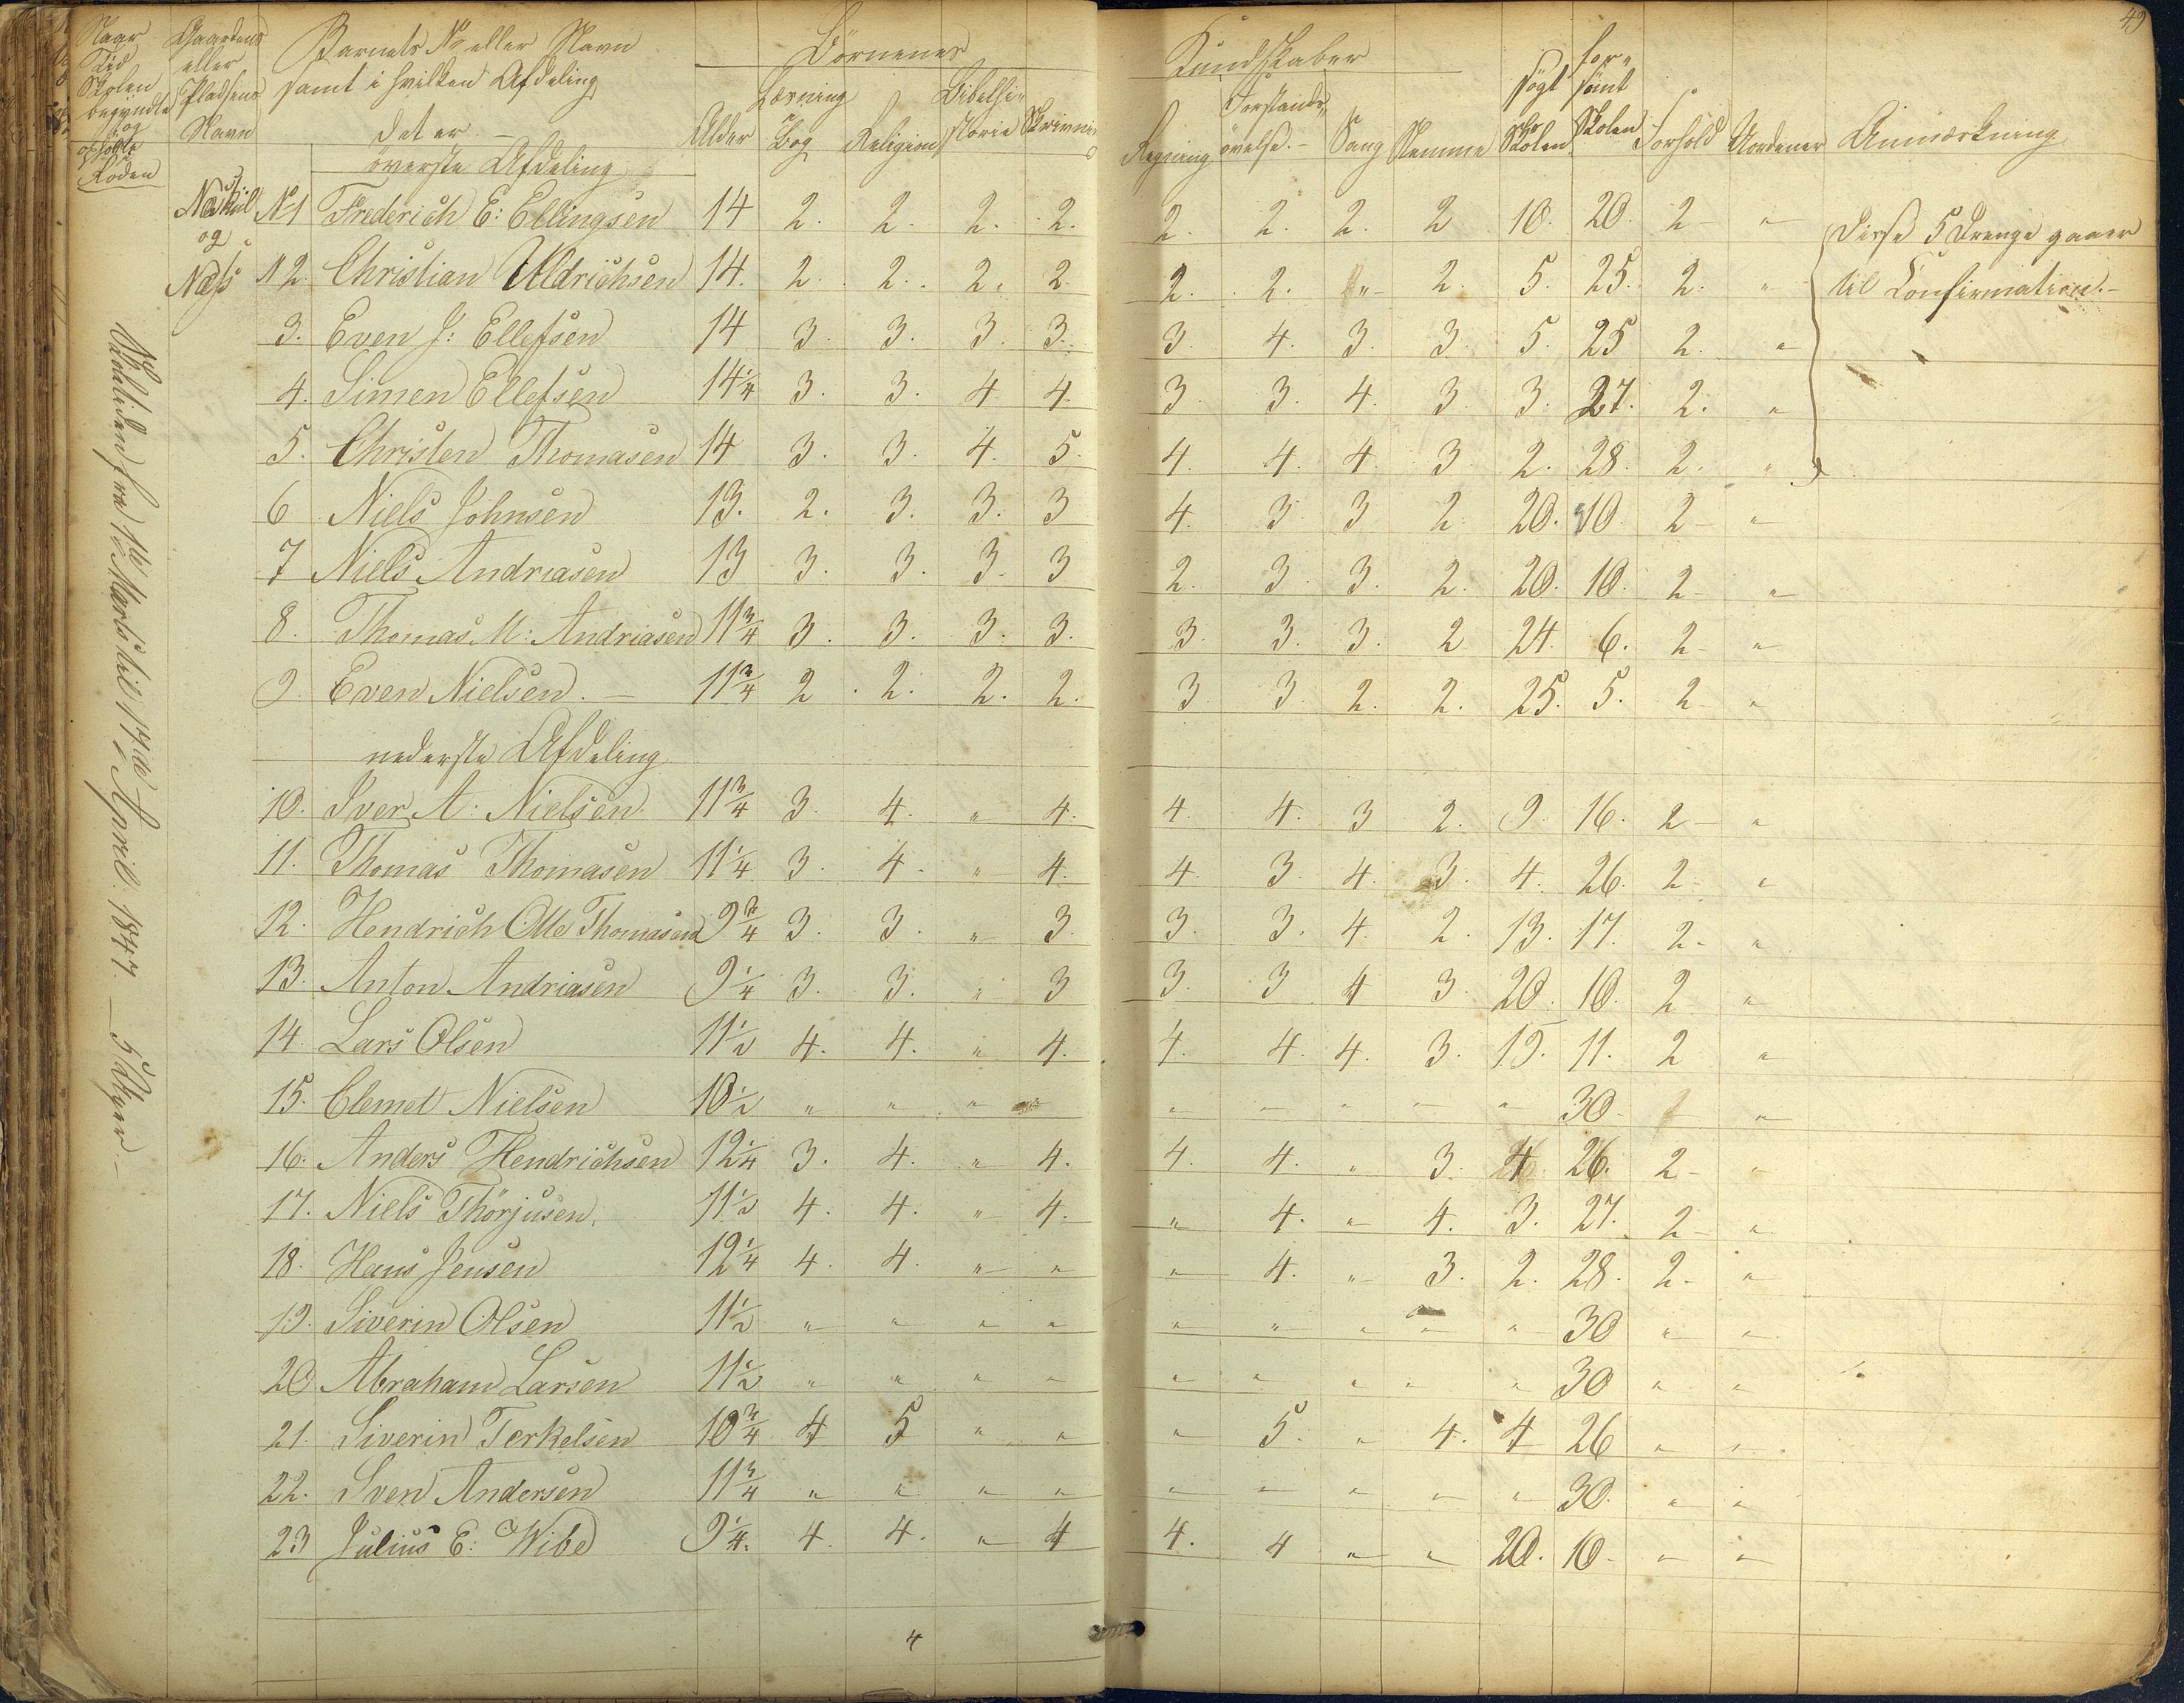 49
Naar Tid Skolen begyndte og opholdt Roden
Gaardens eller Pladsens Navn
Barnets No eller Navn samt i hvilken Afdeling det er. —
Børnenes Kundskaber
Alder
Læsning i Bog
Religion
Bibelhistorie
Skrivning
Regning
Forstands øvelse. —
Sang
Nemme
søgt Skolen
forsømt Skolen
Forhold
Uordener
Anmærkning
øverste Afdeling
Næskil og Næss
Skoletiden fra 1te Marts til 17de April. 1847. — 5 Uger. —
No 1 Frederich E: Ellingsen 14 2. 2. 2. 2. 2. 2. 2. 2 10. 20. 2 - "
N 2. Christian Uldrichsen 14. 2. 2. 2. 2 2. 2. " 2. 5. 25. 2. "
3. Even J: Ellefsen 14 3. 3. 3. 3. 3. 4. 3. 3. 5. 25 2. "
4. Simen Ellefsen 14¼ 3. 3. 4. 4. 3. 3. 4. 3. 3. 27. 2. "
5. Christen Thomasen 14 3. 3. 4. 5. 4. 4. 4. 3 2. 28. 2. "
Disse 5 Drenge gaaer
til Confirmation. —
6 Niels Johnsen 13. 2. 3. 3. 3 4. 3 3 2. 20. 10. 2 - "
7 Niels Andriasen 13 3. 3. 3. 3 2. 3. 3. 2. 20. 10. 2 - "
8. Thomas M: Andriasen 11¾ 3. 3. 3. 3. 3. 3. 3. 2 24. 6. 2 - "
9. Even Nielsen. — 11¾ 2. 2. 2. 2. 3 3. 2. 2. 25. 5. 2 "
nederste Afdeling
10. Iver A: Nielsen. 11¾ 3. 4. " 4. 4. 4. 3 2. 9. 16. 2 - "
11. Thomas Thomasen 11¼ 3. 4. " 4. 4. 3. 4. 3. 4. 26. 2. "
12. Hendrich Olle Thomasen 9¾ 3. 3. " 3. 3. 3. 4. 2. 13. 17. 2. "
13. Anton Andriasen 9¼ 3. 3. " 3 3. 3 4 3. 20. 10. 2 "
14. Lars Olsen 11½ 4. 4. " 4. 4. 4. 4. 3. 19. 11. 2 "
15. Clemet Nielsen 10½ " " " " " " " " " 30 - "
16. Anders Hendrichsen 12¼ 3. 4. " 4. 4. 4. " 3. 4 26. 2 - "
17. Niels Thörjusen. 11½ 4. 4. " 4. " 4. " 4. 3. 27. 2 - "
18. Hans Jensen 12¼ 4. 4. " " " 4. " 3. 2. 28. 2. "
19. Siverin Olsen 11½ " " " " " " " " " 30 " "
20 Abraham Larsen 11½ " " " " " " " " " 30 " "
21. Siverin Terkelsen 10¾ 4 5 " " " 5. " 4. 4 26 " "
22. Sven Andersen 11¾ " " " " " " " " " 30. " "
23 Julius E: Wibe 9¼. 4. 4. " 4 4. 4 " " 20. 10. " "
4